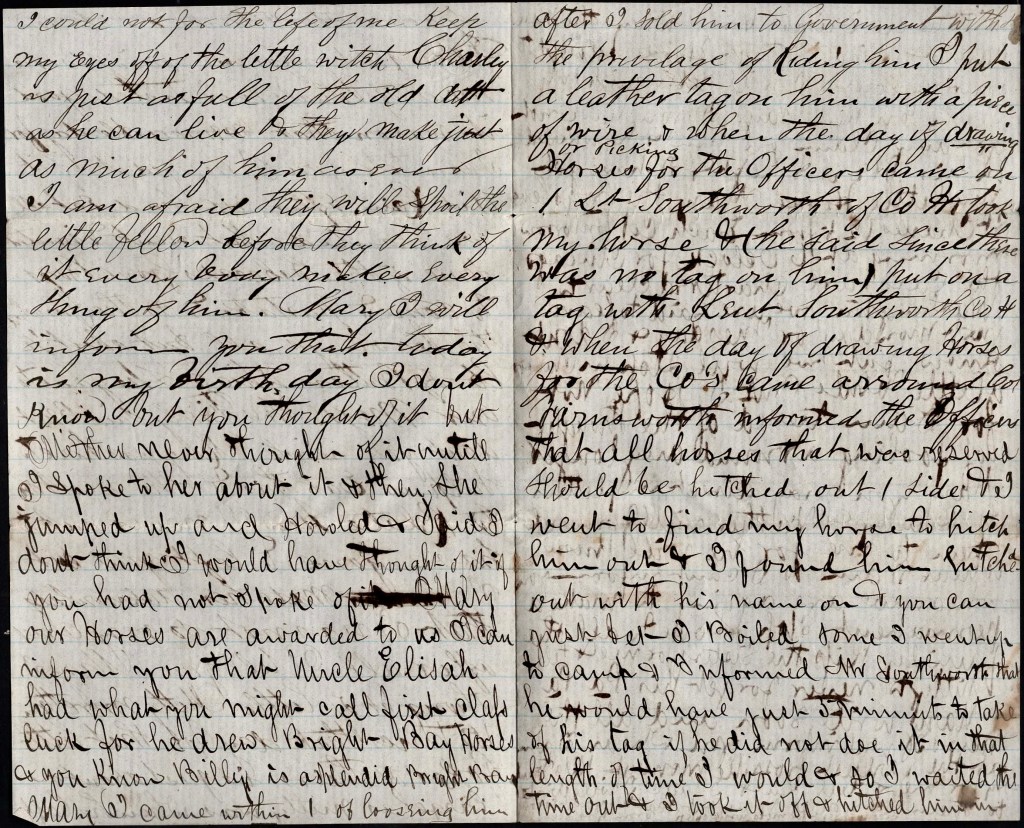 I could not for the life of me Keep
my Eyes off of the little witch Charley
is just as full of the old
as he can live & they make just
as much of him as ever
I am afraid they will Spoil the
little fellow before they think of
it every body makes Every
thing of him. Mary I will
inform you that today
is my birth day I dont
Know but you thought of it but
Mother never thought of it untill
I Spoke to her about it & then She
jumped up and & Said I
dont think I would have thought of it if
you had not Spoke of Mary
our Horses are awarded to us I can
inform you that Uncle Elisah
had what you might call first Class
luck for he drew Bright Bay Horses
& you Know Billy is a splendid Bright Bay
Mary I came within 1 of loosing him
after I sold him to Government with
the privilage of Riding him I put
a leather tag on him with a piece
of wire & when the day of drawing
or Picking
Horses for the Officers came on
1 Lt Southworth of Co H took
my horse & (he said since there
was no tag on him) put on a
tag with Leut Southworth Co H
& when the day of drawing Horses
for the Co's came arround Col
Farnsworth informed the Officers
that all horses that was reserved
Should be hitched out 1 side & I
went to find my horse to hitch
him out & I found him hitched
out with his name on & you can
just bet I Boiled some I went up
to camp & Informed Mr Southworth that
he would have just 5 minuts to take
of his tag if he did not doe it in that
length of time I would & so I waited the
time out & I took it off & hitched him in